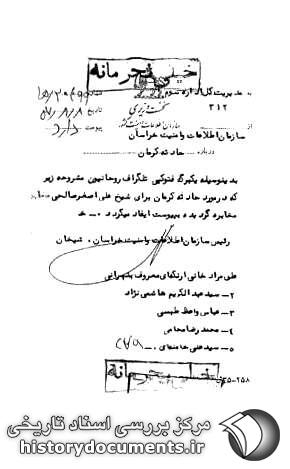 خیلی محرمانه
به مدیریت کل اداره سوم
۳۱۲
نخست وزیری
سازمان اطلاعات و امنیت کشور
از
تاریخ
پیوست دارد
سازمان اطلاعات وامنیت خراسان
درباره حادثه کرمان
بدینوسیله یکبرگ فتوکپی تلگراف روحانیون مشروحه زیر
که درمورد حادثه کرمان برای شیخ علی اصغرصالحی
مخابره گردیده بپیوست ایفاد میگردد ۰- خ
رئیس سازمان اطلاعات وامنیت خراسان ۰ شیخان
علی مراد خانی ارنگه‌ای معروف بتهرانی
۲- سیدعبدالکریم هاشمی نژاد
۳- عباس واعظ طبسی
۴- محمد رضا محامی
۵- سیدعلی خامنه‌ای ۰-
خیلی محرمانه
۴۵-۲۵۸
مرکز بررسی اسناد تاریخی
historydocuments.ir